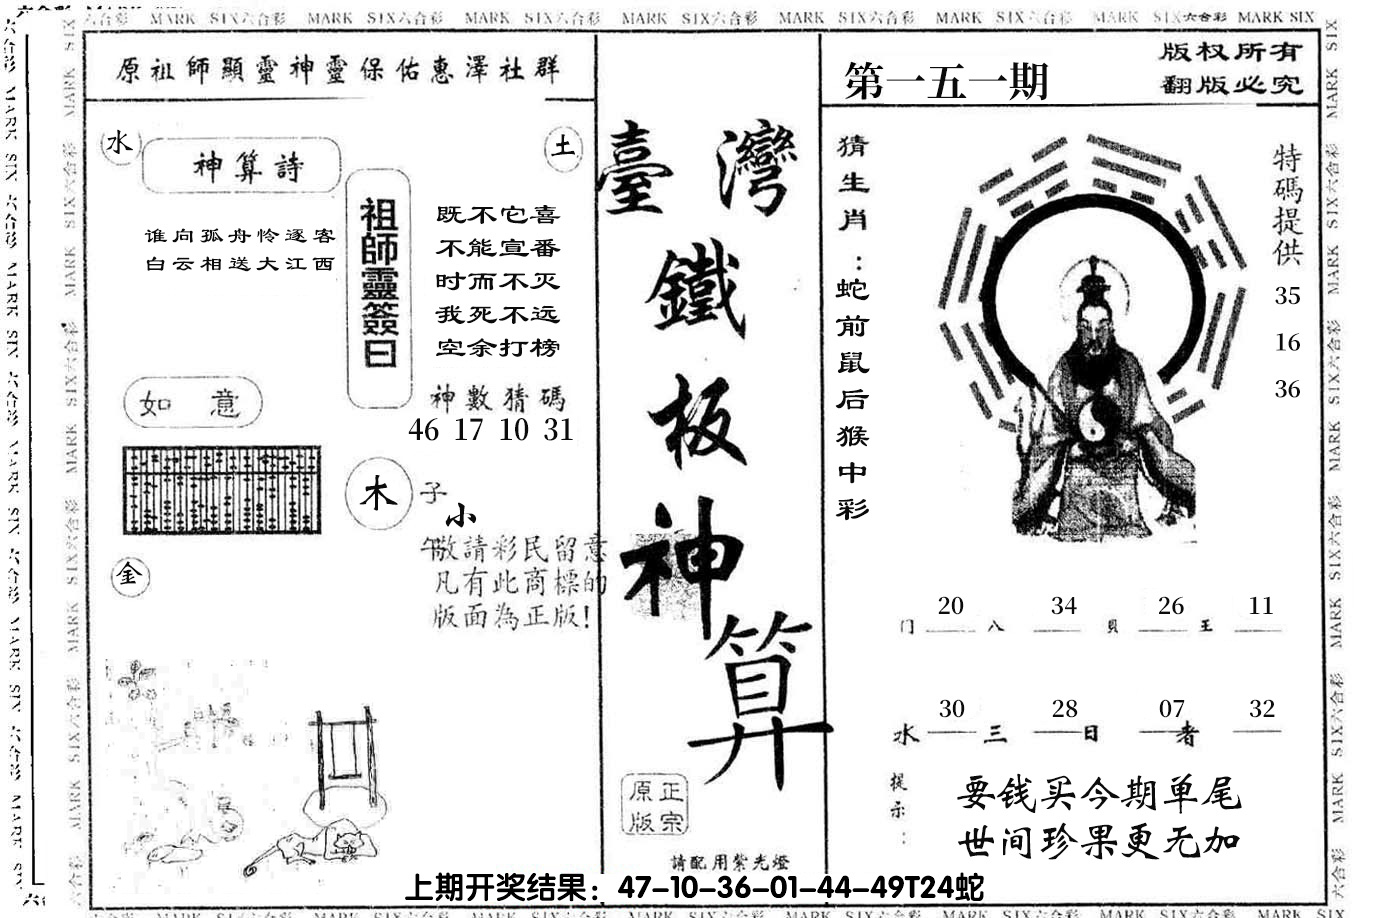 MARK SIX六合彩 MARK SIX六合彩 MARK SIX六合彩 MARK SIX六合彩 MARK SIX六合彩 MARK SIX六合彩 MARK SIX六合彩 MARK SIX六合彩 MARK SIX
原祖師顯靈神靈保佑惠澤社群
水
神算詩
土
谁向孤舟怜逐客
白云相送大江西
祖師靈簽曰
既不它喜
不能宣番
时而不灭
我死不远
空余打榜
如意
神數猜碼
46 17 10 31
木
子
小
午
敬請彩民留意
凡有此商標的
版面為正版!
金
臺灣
鐵
板
神
算
正宗
原版
請配用紫光燈
第一五一期
版权所有
翻版必究
猜生肖:蛇前鼠后猴中彩
特碼提供
35
16
36
20 34 26 11
门 八 贝 王
30 28 07 32
水 三 日 者
提示:
要钱买今期单尾
世间珍果更无加
上期开奖结果：47-10-36-01-44-49T24蛇